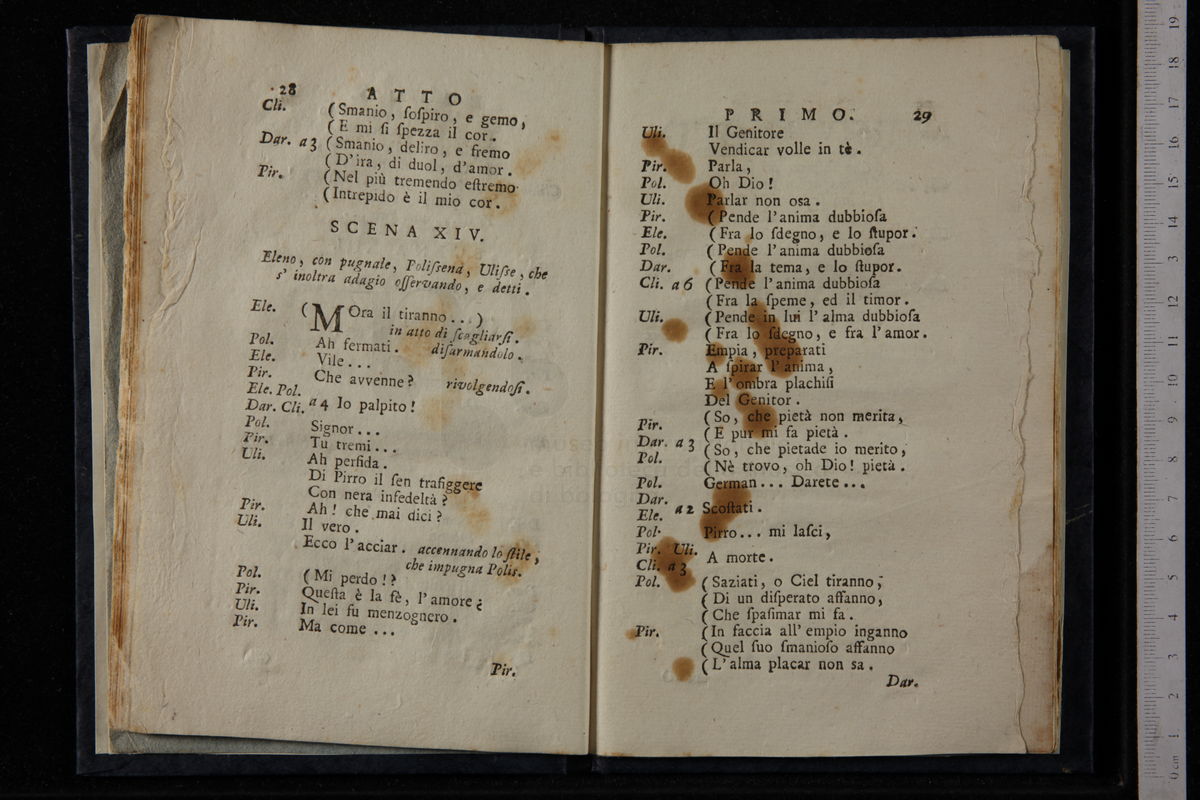 28 ATTO
Cli. (Smanio, ſoſpiro, e gemo,
(E mi ſi ſpezza il cor.
Dar. a 3 (Smanio, deliro, e fremo
(D'ira, di duol, d'amor.
Pir. (Nel più tremendo eſtremo
(Intrepido è il mio cor.
SCENA XIV.
Eleno, con pugnale, Poliſsena, Uliſse, che
s' inoltra adagio oſſervando, e detti.
Ele. (MOra il tiranno...)
in atto di ſcagliarſi.
Pol. Ah fermati. diſarmandolo.
Ele. Vile...
Pir. Che avvenne? rivolgendoſi.
Ele. Pol.
Dar. Cli. a 4 Io palpito!
Pol. Signor...
Pir. Tu tremi...
Uli. Ah perfida.
Di Pirro il ſen trafiggere
Con nera infedeltà?
Pir. Ah! che mai dici?
Uli. Il vero.
Ecco l'acciar. accennando lo ſtile,
che impugna Polis.
Pol. (Mi perdo!?
Pir. Queſta è la fè, l'amore?
Uli. In lei fu menzognero.
Pir. Ma come ...
Pir.
PRIMO. 29
Uli. Il Genitore
Vendicar volle in tè.
Pir. Parla,
Pol. Oh Dio!
Uli. Parlar non osa.
Pir. (Pende l'anima dubbioſa
Ele. (Fra lo ſdegno, e lo ſtupor.
Pol. (Pende l'anima dubbioſa
Dar. (Fra la tema, e lo ſtupor.
Cli. a 6 (Pende l'anima dubbioſa
(Fra la ſpeme, ed il timor.
Uli. (Pende in lui l'alma dubbioſa
(Fra lo ſdegno, e fra l'amor.
Pir. Empia, preparati
A ſpirar l'anima,
E l'ombra plachiſi
Del Genitor.
Pir. (So, che pietà non merita,
(E pur mi fa pietà.
Dar. a 3 (So, che pietade io merito,
Pol. (Nè trovo, oh Dio! pietà.
Pol. German... Darete...
Dar.
Ele. a 2 Scoſtati.
Pol. Pirro... mi laſci,
Pir. Uli.
Cli. a 3 A morte.
Pol. (Saziati, o Ciel tiranno,
(Di un diſperato affanno,
(Che ſpaſimar mi fa.
Pir. (In faccia all' empio inganno
(Quel ſuo ſmanioſo affanno
(L'alma placar non sa.
Dar.